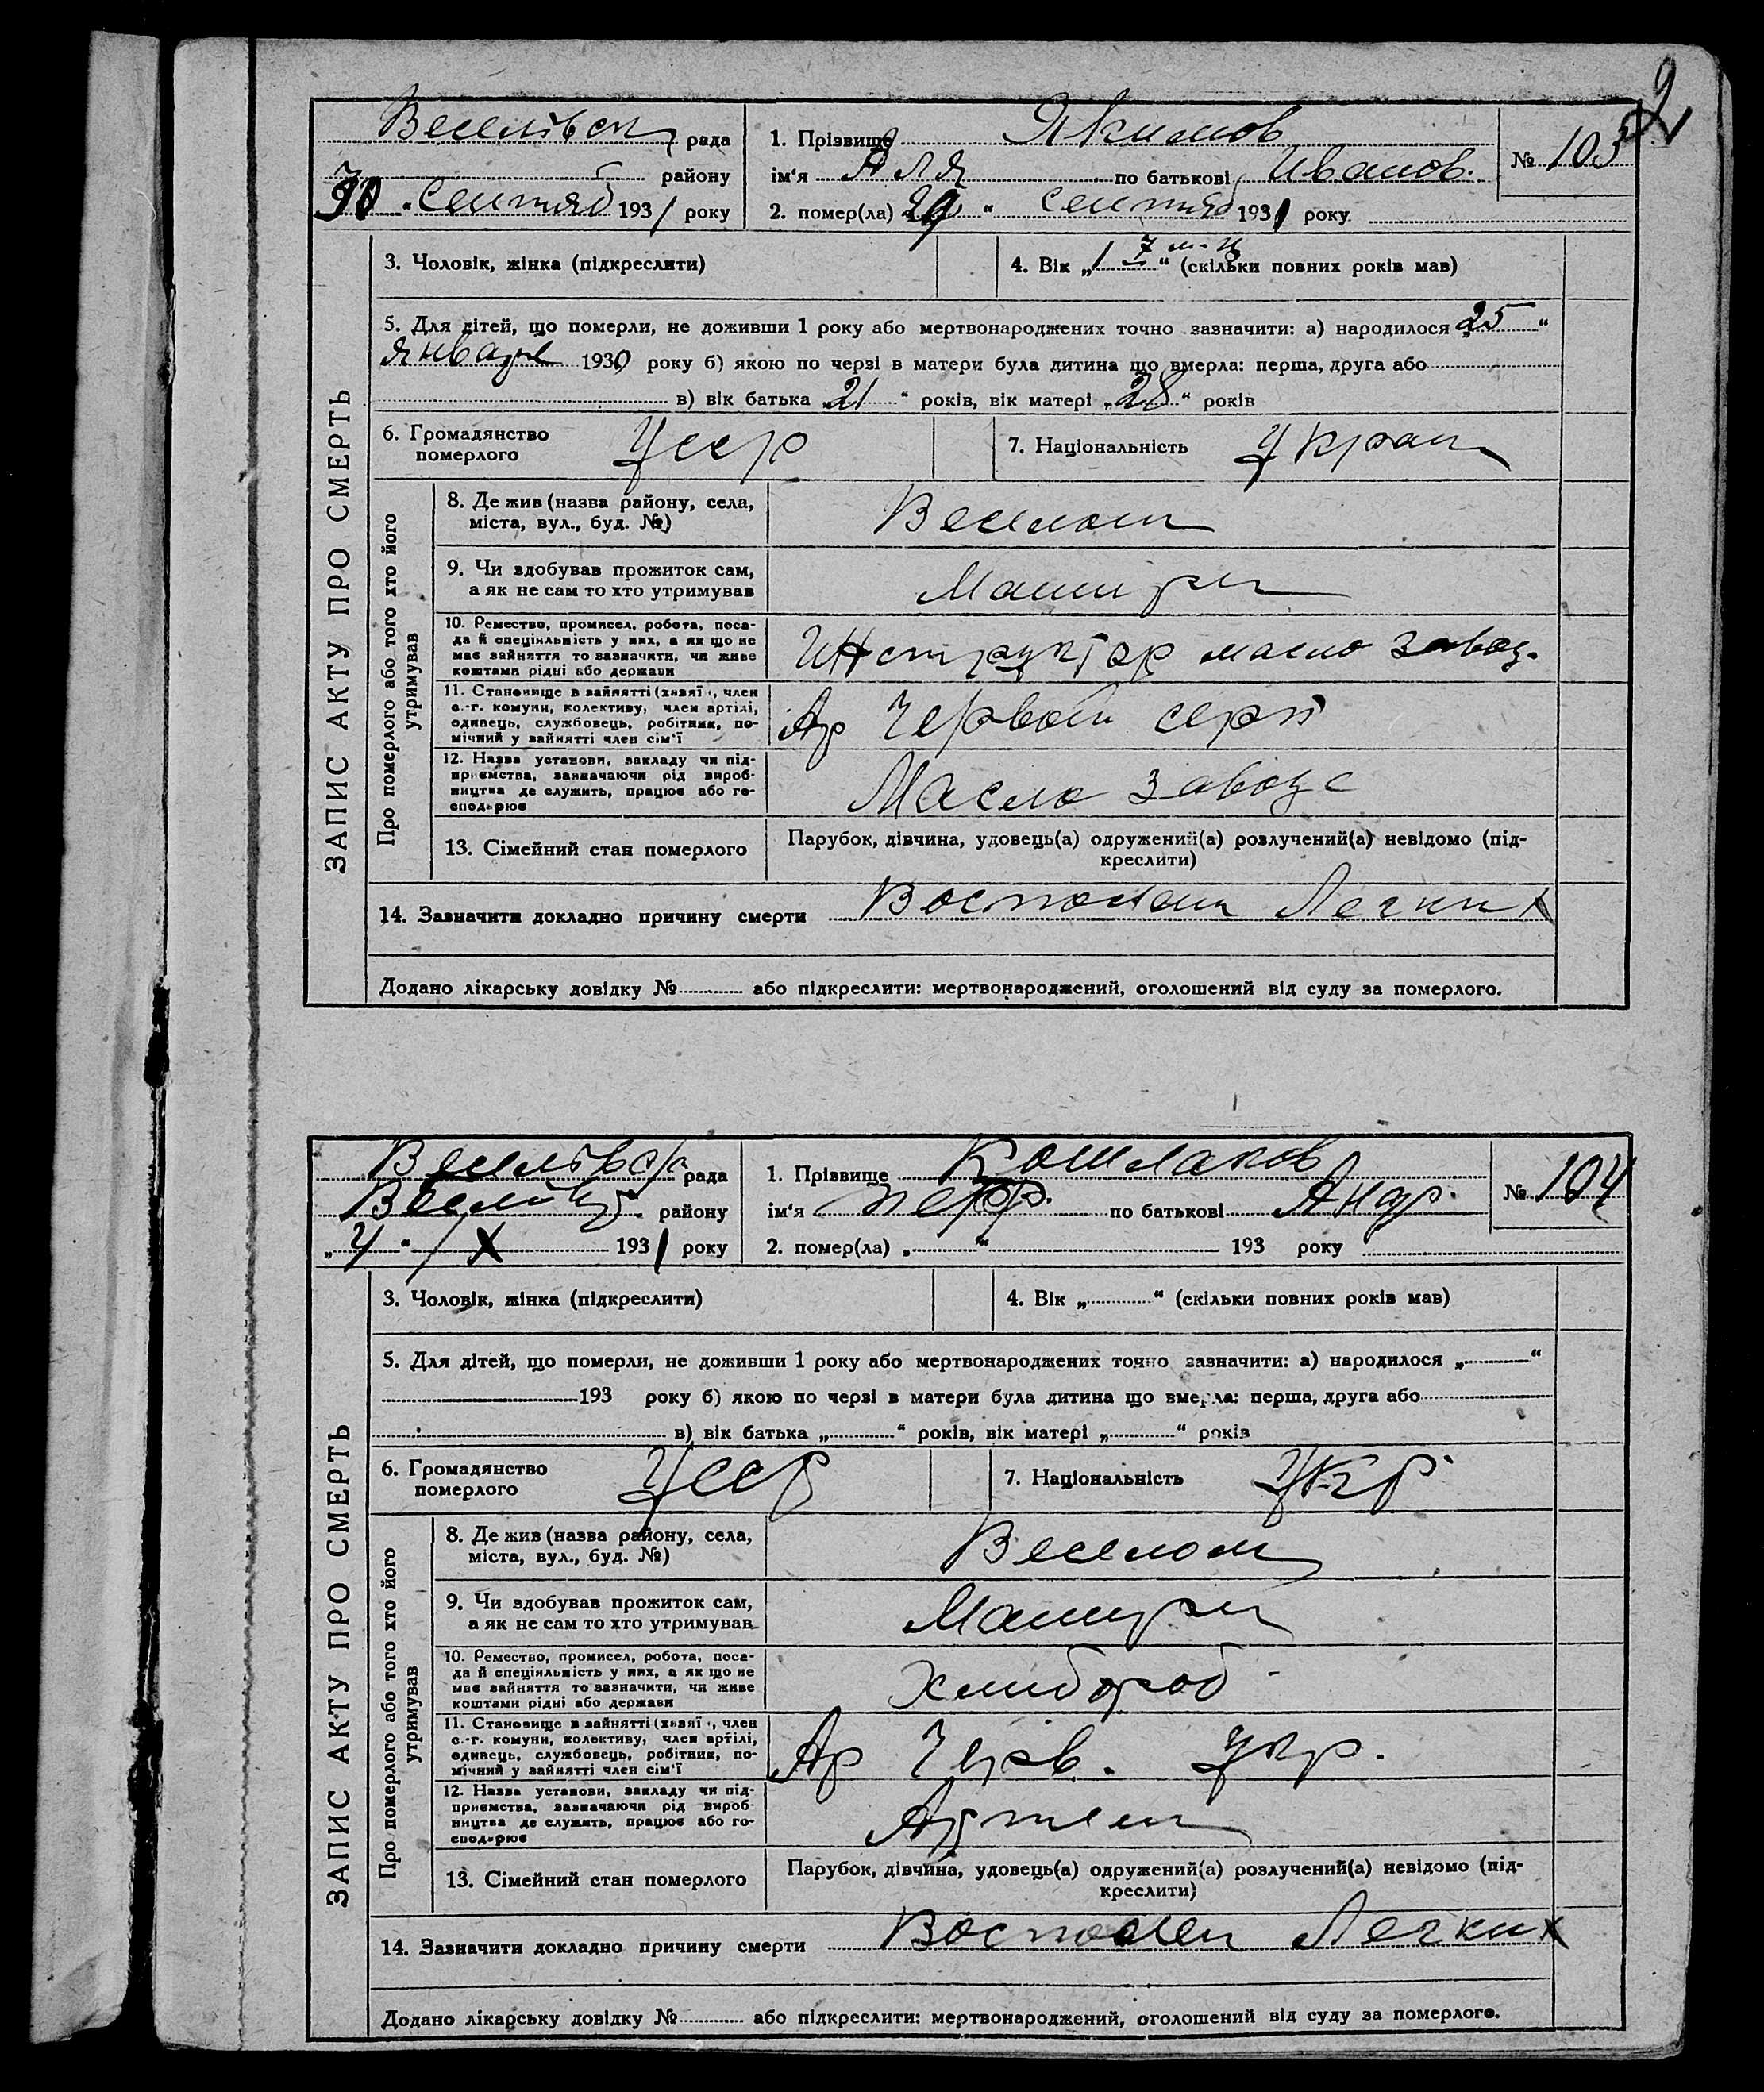 2
Веселівськ рада
району
30 "Сентяб 1931 року
1. Прізвище Якимов
ім'я Аля по батькові Иванов.
2. помер(ла) 29 " Сентяб 1931 року
№ 103
ЗАПИС АКТУ ПРО СМЕРТЬ
3. Чоловік, жінка (підкреслити)
4. Вік „1 7 м-ц“ (скільки повних років мав)
5. Для дітей, що померли, не доживши 1 року або мертвонароджених точно зазначити: а) народилося „25“
Января 1930 року б) якою по черзі в матери була дитина що вмерла: перша, друга або
в) вік батька „21“ років, вік матері „28“ років
6. Громадянство
померлого
Усср
7. Національність Украи
Про померлого або того хто його
утримував
8. Де жив (назва району, села,
міста, вул., буд. №)
Веселом
9. Чи здобував прожиток сам,
а як не сам то хто утримував
10. Ремество, промисел, робота, поса-
да й спеціяльність у них, а як що не
має зайняття то зазначити, чи живе
коштами рідні або держави
Инструктор масло завод.
11. Становище в зайнятті (хазяї, член
с.-г. комуни, колективу, член артілі,
одинець, службовець, робітник, по-
мічний у зайнятті член сім'ї
Ар Червоний серп
12. Назва установи, закладу чи під-
приємства, зазначаючи рід вироб-
ництва де служить, працює або го-
сподарює
Масло завод
13. Сімейний стан померлого
Парубок, дівчина, удовець(а) одружений(а) розлучений(а) невідомо (під-
креслити)
14. Зазначити докладно причину смерти Восполени Легких
Додано лікарську довідку № або підкреслити: мертвонароджений, оголошений від суду за померлого.
Веселівськ рада
району
„4“ / X 1931 року
1. Прізвище Кошлаков
ім'я по батькові Андр.
2. помер(ла) „ “ 193 року
№ 104
ЗАПИС АКТУ ПРО СМЕРТЬ
3. Чоловік, жінка (підкреслити)
4. Вік „ “ (скільки повних років мав)
5. Для дітей, що померли, не доживши 1 року або мертвонароджених точно зазначити: а) народилося „ “
193 року б) якою по черзі в матери була дитина що вмерла: перша, друга або
в) вік батька „ “ років, вік матері „ “ років
6. Громадянство
померлого
Усср
7. Національність Укр
Про померлого або того хто його
утримував
8. Де жив (назва району, села,
міста, вул., буд. №)
Веселом
9. Чи здобував прожиток сам,
а як не сам то хто утримував
10. Ремество, промисел, робота, поса-
да й спеціяльність у них, а як що не
має зайняття то зазначити, чи живе
коштами рідні або держави
Хлибороб
11. Становище в зайнятті (хазяї, член
с.-г. комуни, колективу, член артілі,
одинець, службовець, робітник, по-
мічний у зайнятті член сім'ї
Ар Черв. Укр.
12. Назва установи, закладу чи під-
приємства, зазначаючи рід вироб-
ництва де служить, працює або го-
сподарює
Артели
13. Сімейний стан померлого
Парубок, дівчина, удовець(а) одружений(а) розлучений(а) невідомо (під-
креслити)
14. Зазначити докладно причину смерти Восполен Легких
Додано лікарську довідку № або підкреслити: мертвонароджений, оголошений від суду за померлого.